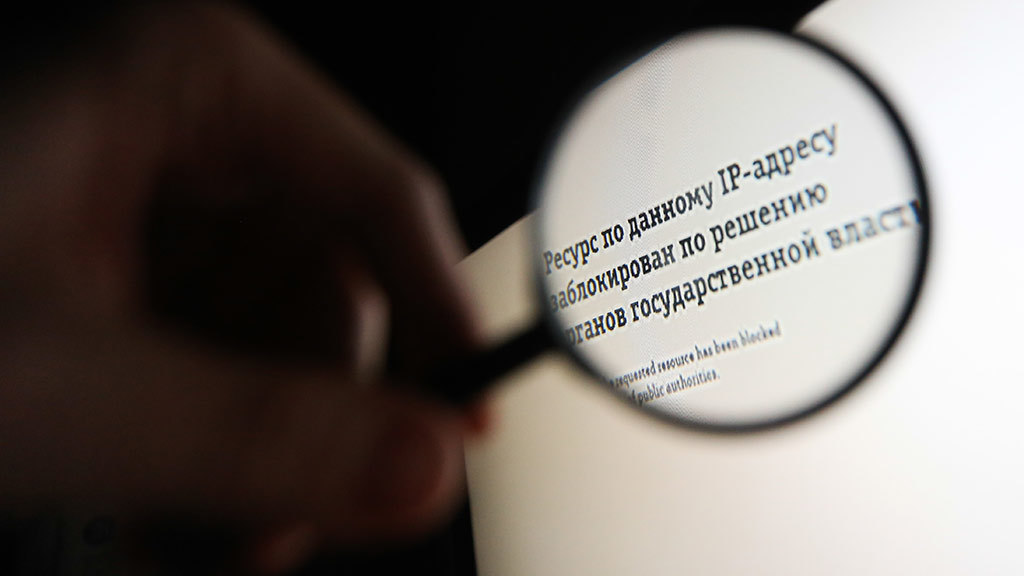 Ресурс по данному IP-адресу
заблокирован по решению
органов государственной власти
requested resource has been blocked
of public authorities.